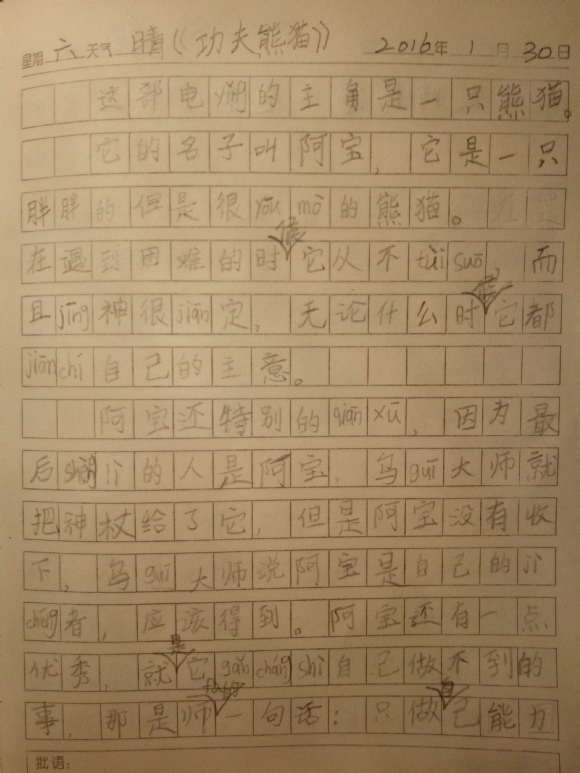 星期六 天气 晴《功夫熊猫》 2016年1月30日
这部电yǐng的主角是一只熊猫。
它的名子叫阿宝，它是一只
胖胖的但是很yōu mò的熊猫。
在遇到困难的时候它从不tuì suō，而
且jīng神很jiān定，无论什么时候它都
jiān chí自己的主意。
阿宝还特别的qiān xū，因为最
后shèng lì的人是阿宝，乌guī大师就
把神杖给了它，但是阿宝没有收
下，乌guī大师说阿宝是自己的jì
chéng者，应该得到。阿宝还有一点
优秀，就是它gǎn cháng shì自己做不到的
事，那是师fu的一句话：只做自己能力
批语：